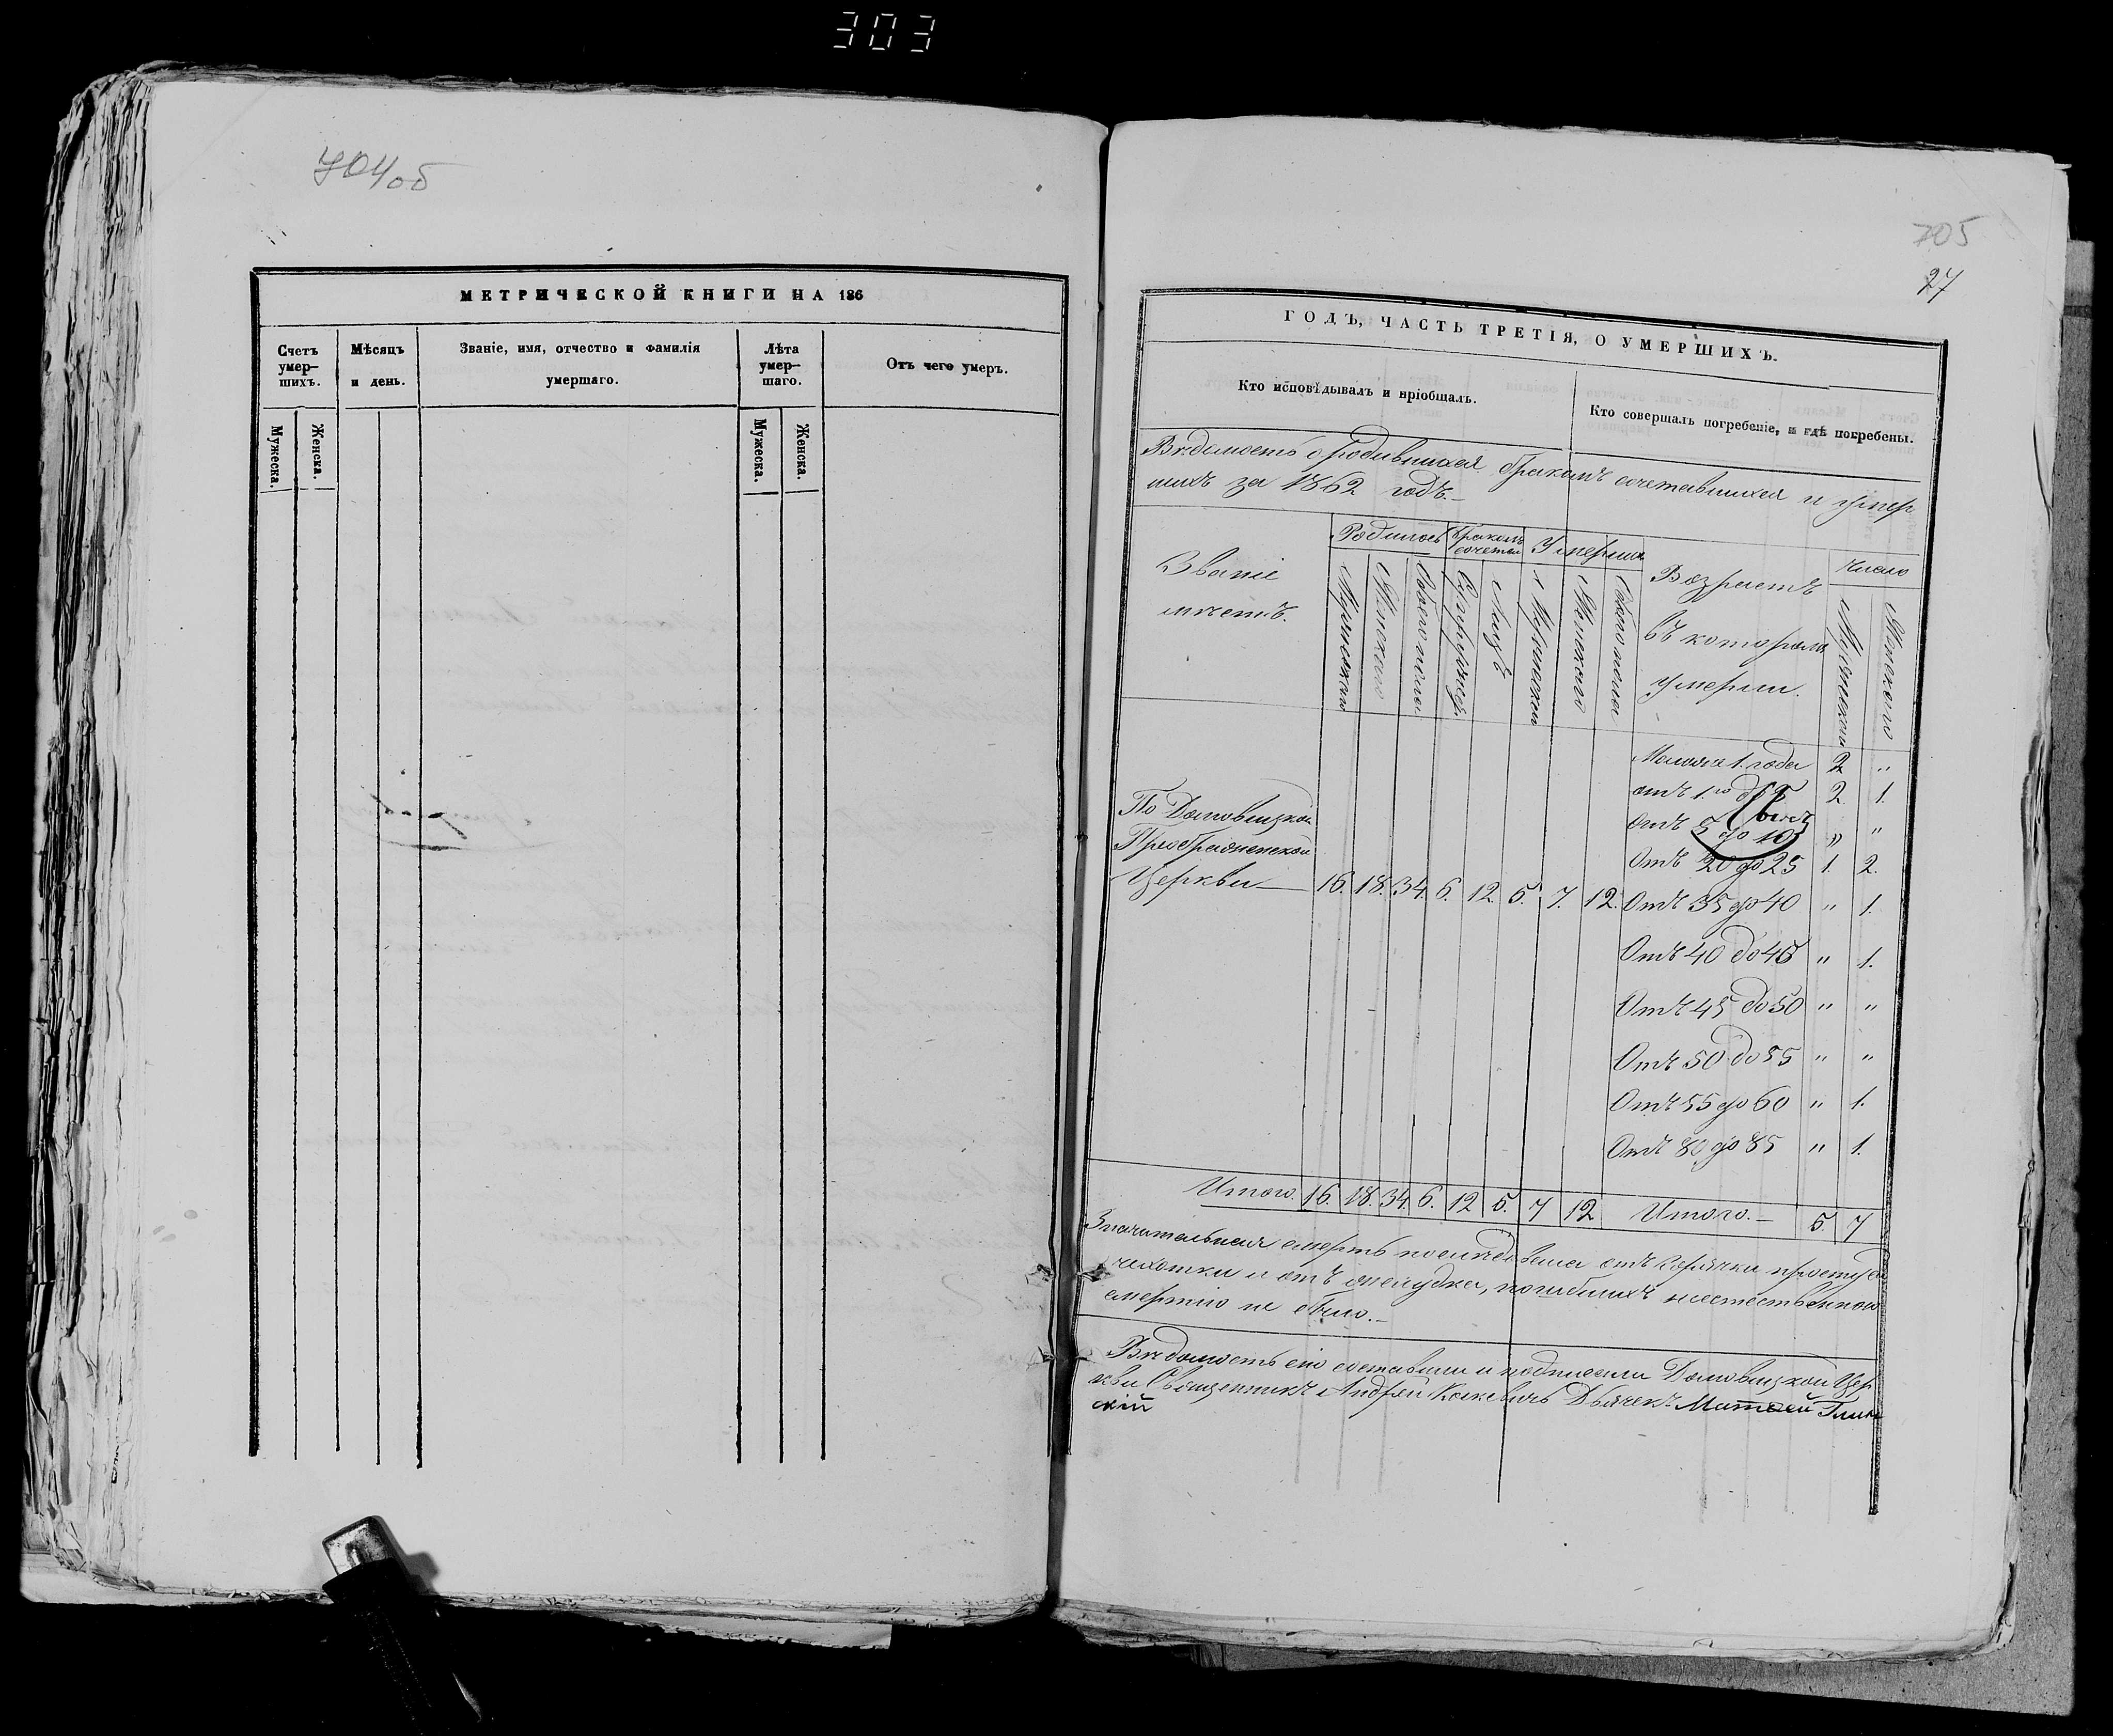 303
704об
МЕТРИЧЕСКОЙ КНИГИ НА 186
Счетъ умер-шихъ.
Мѣсяцъ и день.
Званіе, имя, отчество и фамилія умершаго.
Лѣта умер-шаго.
Отъ чего умеръ.
Мужеска.
Женска.
Мужеска.
Женска.
705
27
ГОДЪ, ЧАСТЬ ТРЕТІЯ, О УМЕРШИХЪ.
Кто исповѣдывалъ и пріобщалъ.
Кто совершалъ погребеніе, и гдѣ погребены.
Вѣдомость о родившихся бракомъ сочетавшихся и умер
шихъ за 1862 годъ.
Званіе мѣстъ.
Родилось
Бракомъ сочетал
Умерших
Возрастъ въ которомъ умерли.
Число
Мужескаго
Женскаго
Обоего пола
Супружес.
Лицъ
Мужескаго
Женскаго
Обоего пола
Мужескаго
Женскаго
Моложе 1. года 2 "
отъ 1.го до 5 2. 1.
Отъ 5 до 10 " "
Отъ 20 до 25 1. 2.
По Домовицкой
Преображенской
Церкви 16. 18. 34. 6. 12. 5. 7. 12. Отъ 35 до 40 " 1.
Отъ 40 до 45 " 1.
Отъ 45 до 50 " "
Отъ 50 до 55 " "
Отъ 55 до 60 " 1.
Отъ 80 до 85 " 1.
Итого. 16. 18. 34. 6. 12 5. 7 12. Итого. 5. 7
Значительная смерть послѣдовала отъ горячки простуды
чахотки и отъ желудка, погибшихъ неестественною
смертію не было.
Вѣдомость сію составили и подписали Домовицкой Цер
кви Священникъ Андрей Дьячекъ Матвей
скій